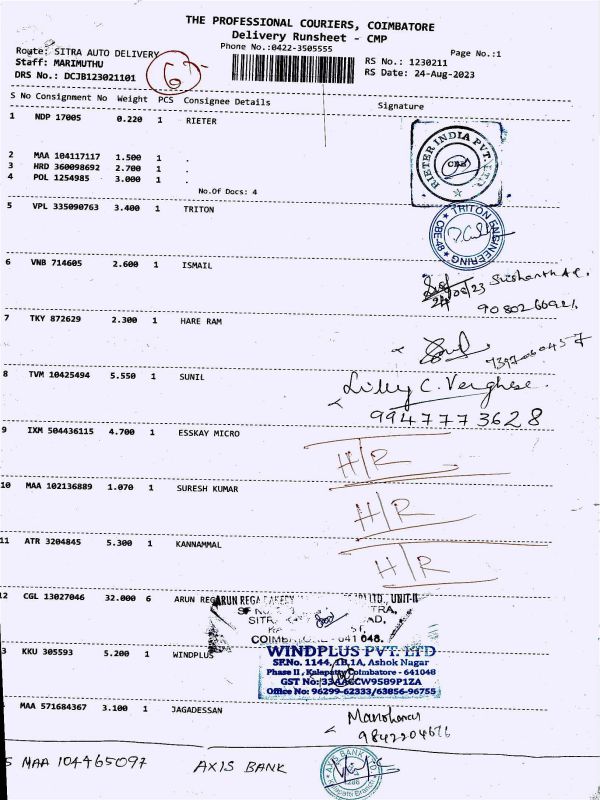 THE PROFESSIONAL COURIERS, COIMBATORE
Delivery Runsheet - CMP
Phone No.:0422-3505555
Page No.:1
Route: SITRA AUTO DELIVERY
Staff: MARIMUTHU
DRS No.: DCJB123021101
67
RS No.: 1230211
RS Date: 24-Aug-2023
S No Consignment No Weight PCS Consignee Details Signature
1 NDP 17005 0.220 1 RIETER
RIETER INDIA PVT. LTD.
CBE
2 MAA 104117117 1.500 1 .
3 HRD 360098692 2.700 1 .
4 POL 1254985 3.000 1 .
No.Of Docs: 4
5 VPL 335090763 3.400 1 TRITON
TRITON ENGINEERING
CBE-48
6 VNB 714605 2.600 1 ISMAIL
Sushanth A.C.
9080266926
7 TKY 872629 2.300 1 HARE RAM
7397060457
8 TVM 10425494 5.550 1 SUNIL
Lilly C. Verghese.
99477 73628
9 IXM 504436115 4.700 1 ESSKAY MICRO
H/R
10 MAA 102136889 1.070 1 SURESH KUMAR
H/R
11 ATR 3204845 5.300 1 KANNAMMAL
H/R
12 CGL 13027046 32.000 6 ARUN REGA
ARUN REGA BAKERY LTD., UNIT-II
COIMBATORE - 641 048.
3 KKU 305593 5.200 1 WINDPLUS
WINDPLUS PVT. LTD
SF.No. 1144, 1B,1A, Ashok Nagar
Phase II, Kalapatty Coimbatore - 641048
GST No: 33AACCW9589P1ZA
Office No: 96299-62333/63856-96755
MAA 571684367 3.100 1 JAGADESSAN
Manoharan
9842204616
5 MAA 104465097 AXIS BANK
AXIS BANK LTD.
Kalapatti Branch